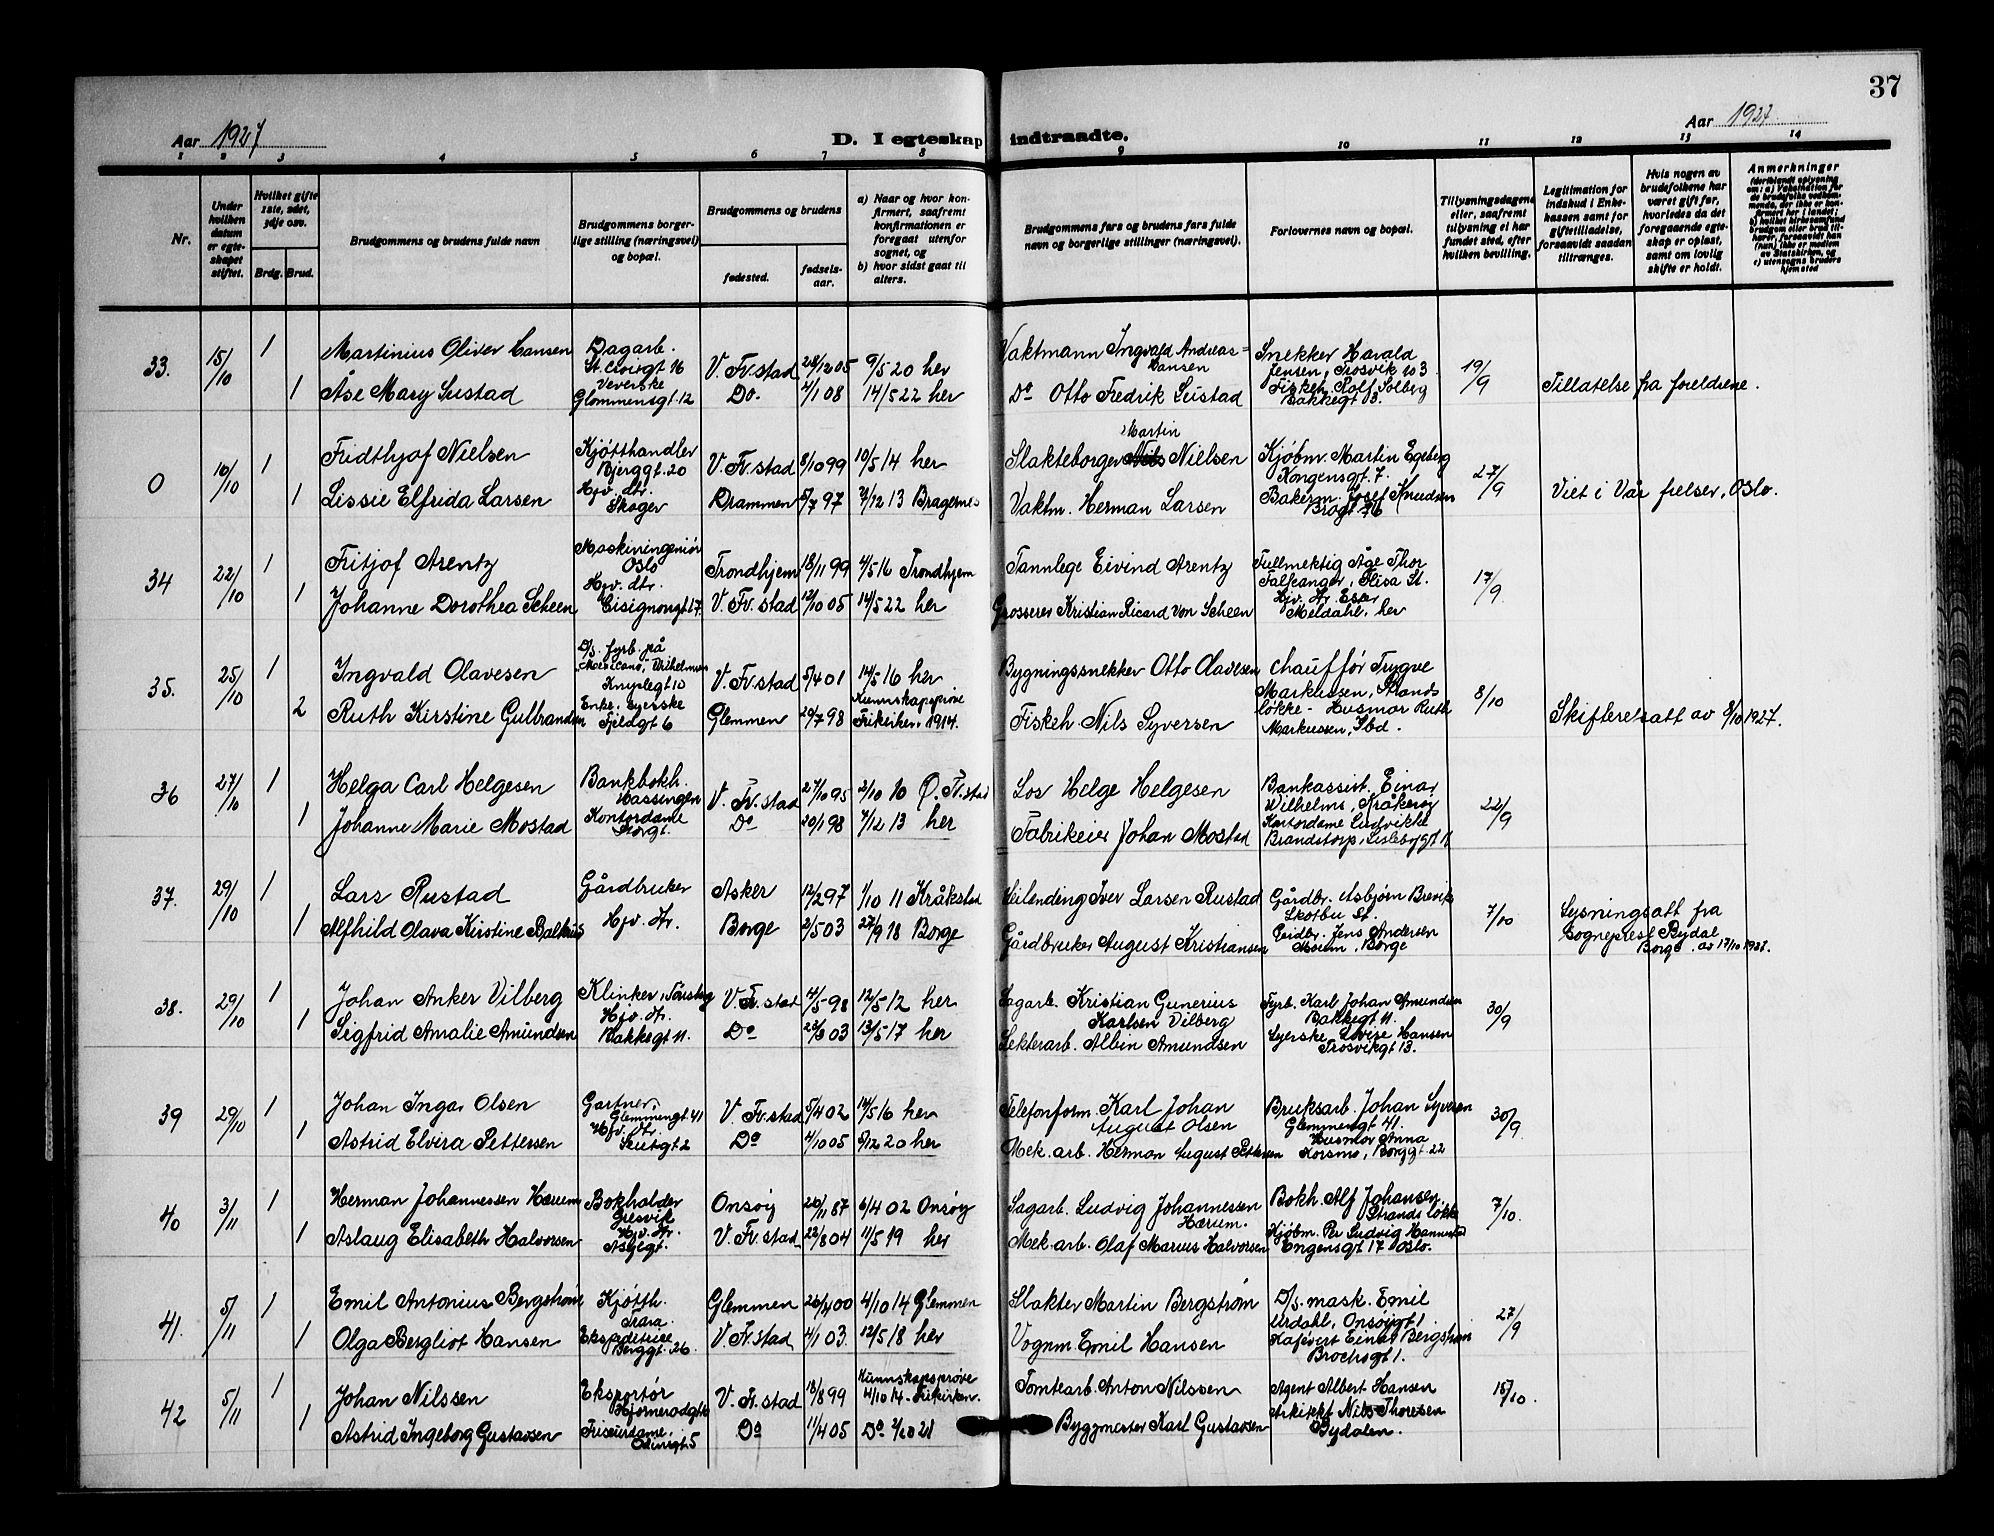 37
Aar 1927
D. I egteskap indtraadte.
Aar 1927
1 2 3 4 5 6 7 8 9 10 11 12 13 14
Nr.
Under hvilken datum er egte-skapet stiftet.
Hvilket gifte 1ste, 2det, 3dje osv.
Brdg. Brud.
Brudgommens og brudens fulde navn
Brudgommens borger-lige stilling (næringsvei) og bopæl.
Brudgommens og brudens
fødested.
fødsels-aar.
a) Naar og hvor kon-firmert, saafremt konfirmationen er foregaat utenfor sognet, og
b) hvor sidst gaat til alters.
Brudgommens fars og brudens fars fulde navn og borgerlige stillinger (næringsvei).
Forlovernes navn og bopæl.
Tillysningsdagene eller, saafremt tillysning ei har fundet sted, efter hvilken bevilling.
Legitimation for indskud i Enke-kassen samt for giftetilladelse, forsaavidt saadan tiltrænges.
Hvis nogen av brudefolkene har været gift før, hvorledes da det foregaaende egte-skap er opløst, samt om lovlig skifte er holdt.
Anmerkninger
33. 15/10 1 Martinius Oliver Hansen Dagarb. St. Croixgt 16 V. Fr.stad 28/12 05 9/5 20 her Vaktmann Ingvald Andreas Hansen Snekker Harald Jensen, Trosvik 103 19/9 Tillatelse fra foreldrene.
1 Åse Mary Sustad Veverske Glommensgt. 12 Do. 4/1 08 14/5 22 her Do Otto Fredrik Sustad Fiskeh. Rolf Solberg Bakkegt 13.
0 16/10 1 Fridthjof Nielsen Kjøtthandler Bjerggt. 20 V. Fr.stad 8/10 99 10/5 14 her Slakteborger Martin Nielsen Kjøbm. Martin Egeberg Kongensgt 7. 27/9 Viet i Vår frelser, Oslo.
1 Lissie Elfrida Larsen Hjv. dtr. Skoger Drammen 5/7 97 7/12 13 Bragernes Vaktm. Herman Larsen Bakerm. Josef Knudsen
34 22/10 1 Fritjof Arentz Maskiningeniør Oslo Trondhjem 18/11 99 4/5 16 Trondhjem Tannlege Eivind Arentz Fullmektig Åge Thor Falkanger, Elisa St. 17/9
1 Johanne Dorothea Scheen Hjv. dtr. Cisignongt 17 V. Fr. stad 12/10 05 14/5 22 her Grosserer Kristian Ricard von Scheen Hjv. dtr. Ester Meldahl, her
35. 25/10 1 Ingvald Olavesen D/s. fyrb. på "Mexicano", Knipleegt 10 V. Fr.stad 5/4 01 14/5 16 her Bygningssnekker Otto Olavesen Chauffør Trygve Markussen, Strandsløkke - 8/10 Skifteretsatt av 8/10 1927.
2 Ruth Kirstine Gulbrandsen Enke. Syerske Fjeldgt 6 Glemmen 29/7 98 Kunnskapsprøve Frikirken 1914. Fiskeh Nils Syversen Husmor Ruth Markussen, Ibd.
36 27/10 1 Helga Carl Helgesen Bankbokh. Hassingen V. Fr. stad 27/10 95 2/10 10 Ø. Fr.stad Los Helge Helgesen Bankassist. Einar Wilhelms, Kråkerøy 22/9
1 Johanne Marie Mostad Kontordame Storgt. Do 20/1 98 7/12 13 her Fabrikeier Johan Mostad Kontordame Ludvikke Brandstorp, Lislebygt 11
37. 29/10 1 Lars Rustad Gårdbruker Asker 12/2 97 1/10 11 Kråkstad Leilending Iver Larsen Rustad Gårdbr. Asbjørn Brevik Skotbu St. 7/10 Lysningsatt fra Sogneprest Bejdal Borge av 17/10 1928.
1 Alfhild Olava Kirstine Balkus Hjv. dtr. Borge 2/5 03 22/9 18 Borge Gårdbruker August Kristiansen Gårdbr. Jens Andersen Moum, Borge
38. 29/10 1 Johan Anker Vilberg Klinker, V. Fr. stad 4/5 98 12/5 12 her Sagarb. Kristian Gunerius Karlsen Vilberg Fyrb. Karl Johan Amundsen Bakkegt 11. 30/9
1 Sigfrid Amalie Amundsen Hjv. dtr. Bakkegt 11. Do 25/8 03 13/5 17 her Lekterarb. Albin Amundsen Syerske Lovise Hansen Trosvikgt 13.
39 29/10 1 Johan Ingar Olsen Gartner, Glemmengt 41 V. Fr.stad 5/4 02 14/5 16 her Telefonform. Karl Johan August Olsen Bruksarb. Johan Syversen Glemmengt 41. 30/9
1 Astrid Elvira Pettersen Hjv. dtr. Skutgt 2 Do 4/10 05 5/12 20 her Mek. arb. Herman August Pettersen Husmor Anna Korsmo, Borggt. 22
40 3/11 1 Herman Johannessen Hærum Bokholder Gresvik Onsøy 20/11 87 6/4 02 Onsøy Sagarb. Ludvig Johannessen Hærum. Bokh. Alf Johansen, Strandsløkke 7/10.
1 Aslaug Elisabeth Halvorsen Hjv. dtr. Asylgt. V. Fr.stad 22/8 04 11/5 19 her Mek. arb. Olaf Marius Halvorsen Kjøbm. Per Ludvig Hannestad Engensgt 17 Oslo.
41. 5/11 1 Emil Antonius Bergstrøm Kjøtth. Trara. Glemmen 26/4 00 4/10 14 Glemmen Slakter Martin Bergstrøm D/s. mask. Emil Urdahl, Onsøigt 1. 27/9
1 Olga Bergliot Hansen Ekspeditrise Berggt. 26 V. Fr.stad 4/1 03. 12/5 18 her Vognm. Emil Hansen Kafévert Einar Bergstrøm Brochsgt 1.
42 5/11 1 Johan Nilssen Eksportør V. Fr. stad 18/8 99 Kunnskapsprøve 4/10 14. Frikirken. Tomtearb. Anton Nilssen Agent Albert Hansen 15/10.
1 Astrid Ingeborg Gustavsen Frisørdame, Odinsgt 5 Do 11/4 05 Do 2/10 21 Byggmester Karl Gustavsen Arkitekt Nils Thoresen Bydalen.